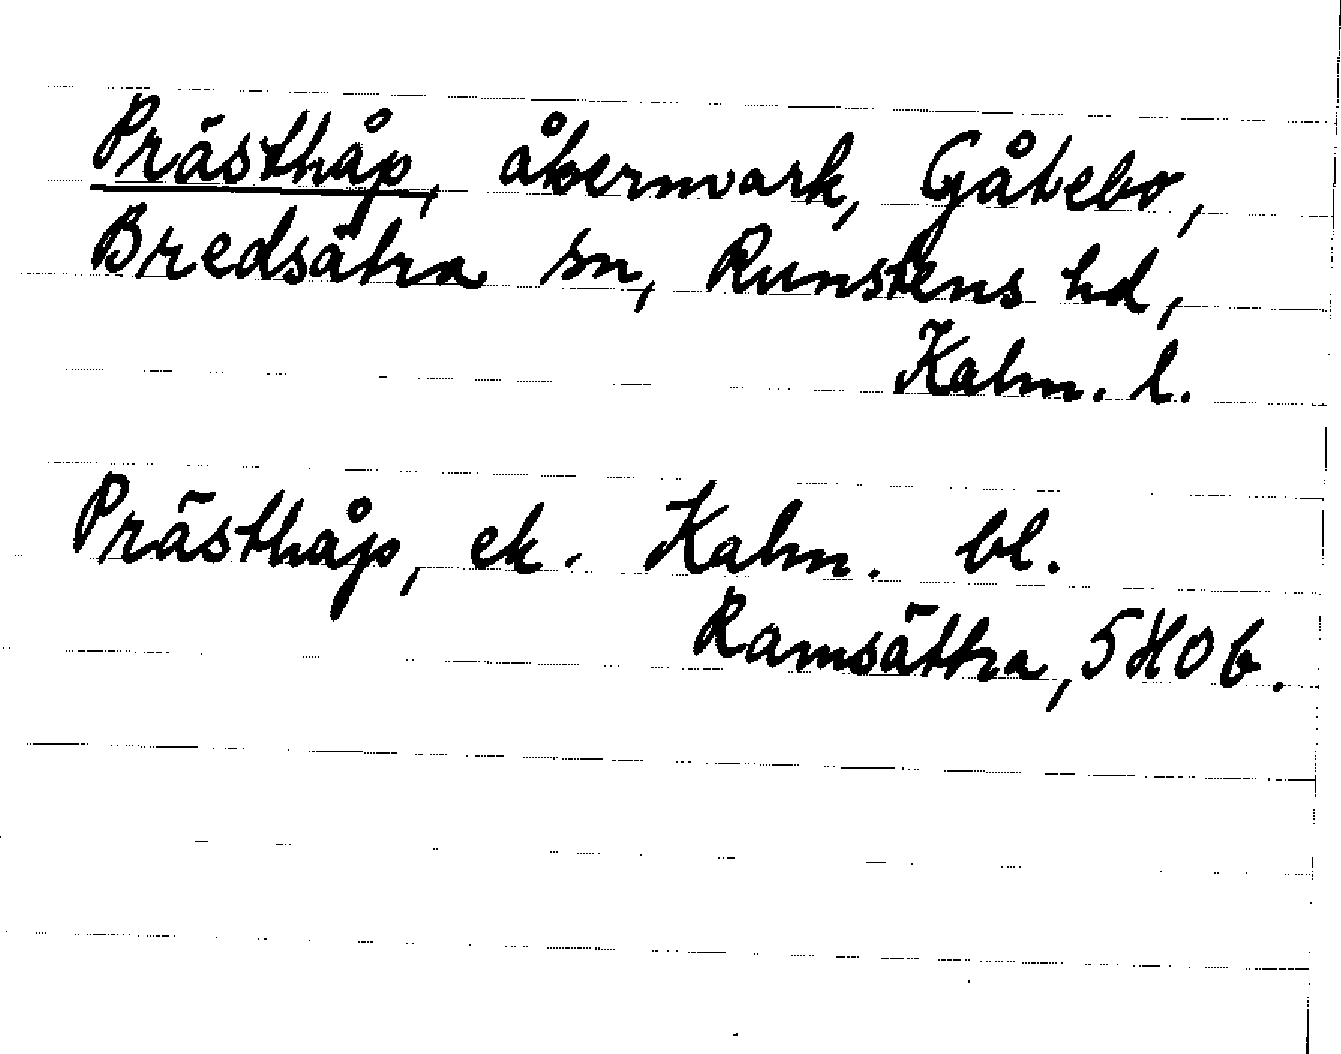 Prästhåp, åkermark, Gåtebo,
Bredsätra sn, Runstens hd,
Kalm. l.
Prästhåp, ek. Kalm. bl.
Ramsättra, 5 H 0 b.